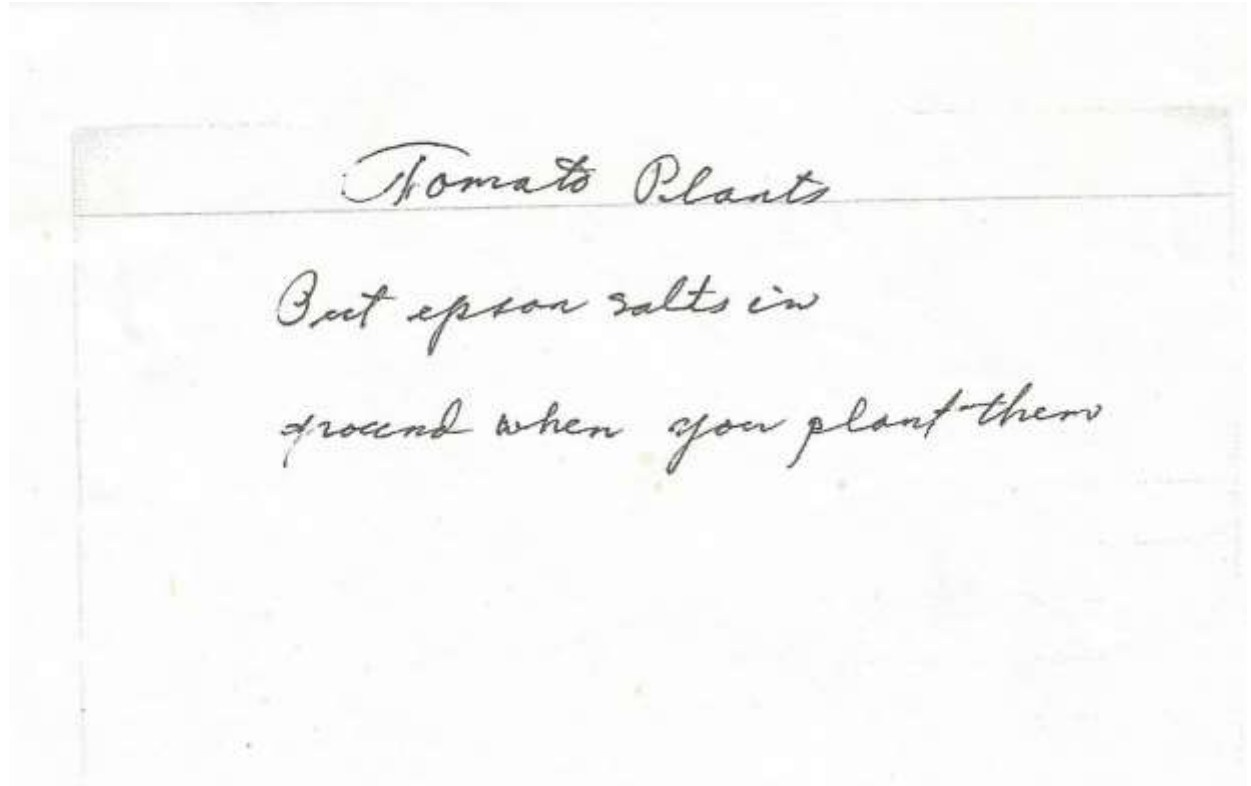 Tomato Plants
Put epson salts in
ground when you plant them